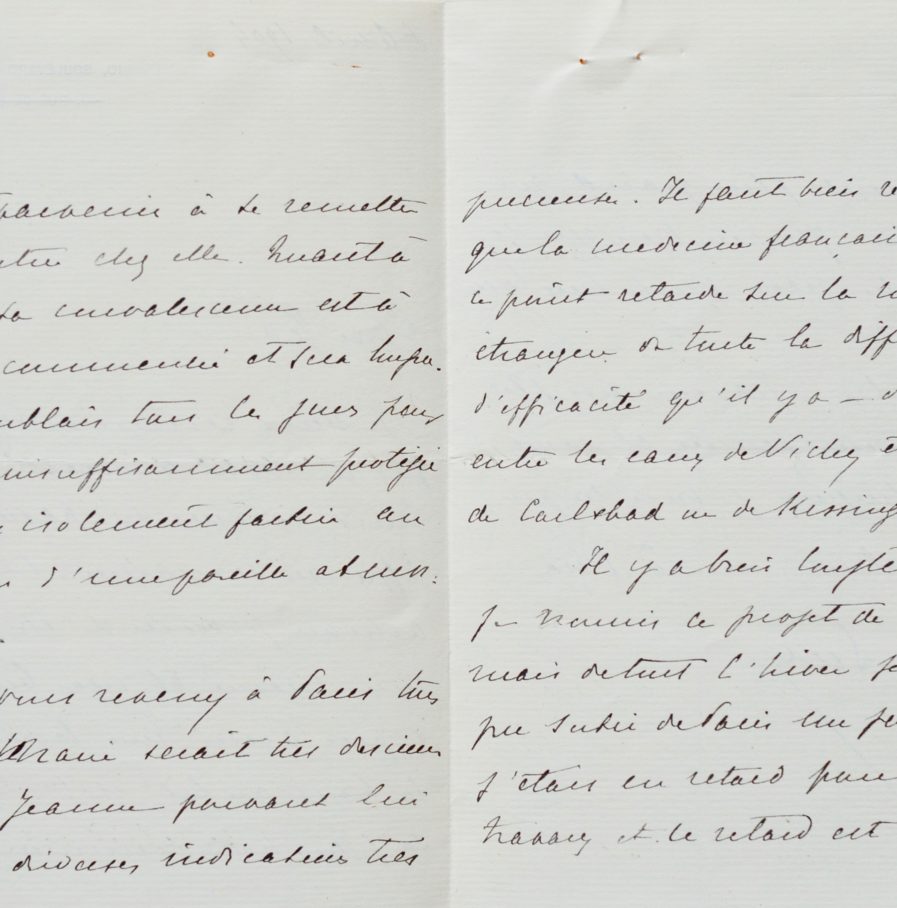 parvenir à se remettre
chez elle. Quant à
sa convalescence est à
commencée et sera longue.
oublais tous les jours pour
insuffisamment protégée
isolement factice au
d'une pareille atmos.
vous revenez à Paris très
serait très désireux
Jeanne pouvant lui
diverses indications très
précieuses. Il faut bien re
que la médecine français
ce point retarde sur la m
étranger de toute la diff
d'efficacité qu'il y a — d
entre les eaux de Vichy e
de Carlsbad ou de Kissing
Il y a bien longte
je nourris ce projet de
mais de tout l'hiver je
pu sortir de Paris un je
j'étais en retard pour
travaux et ce retard est